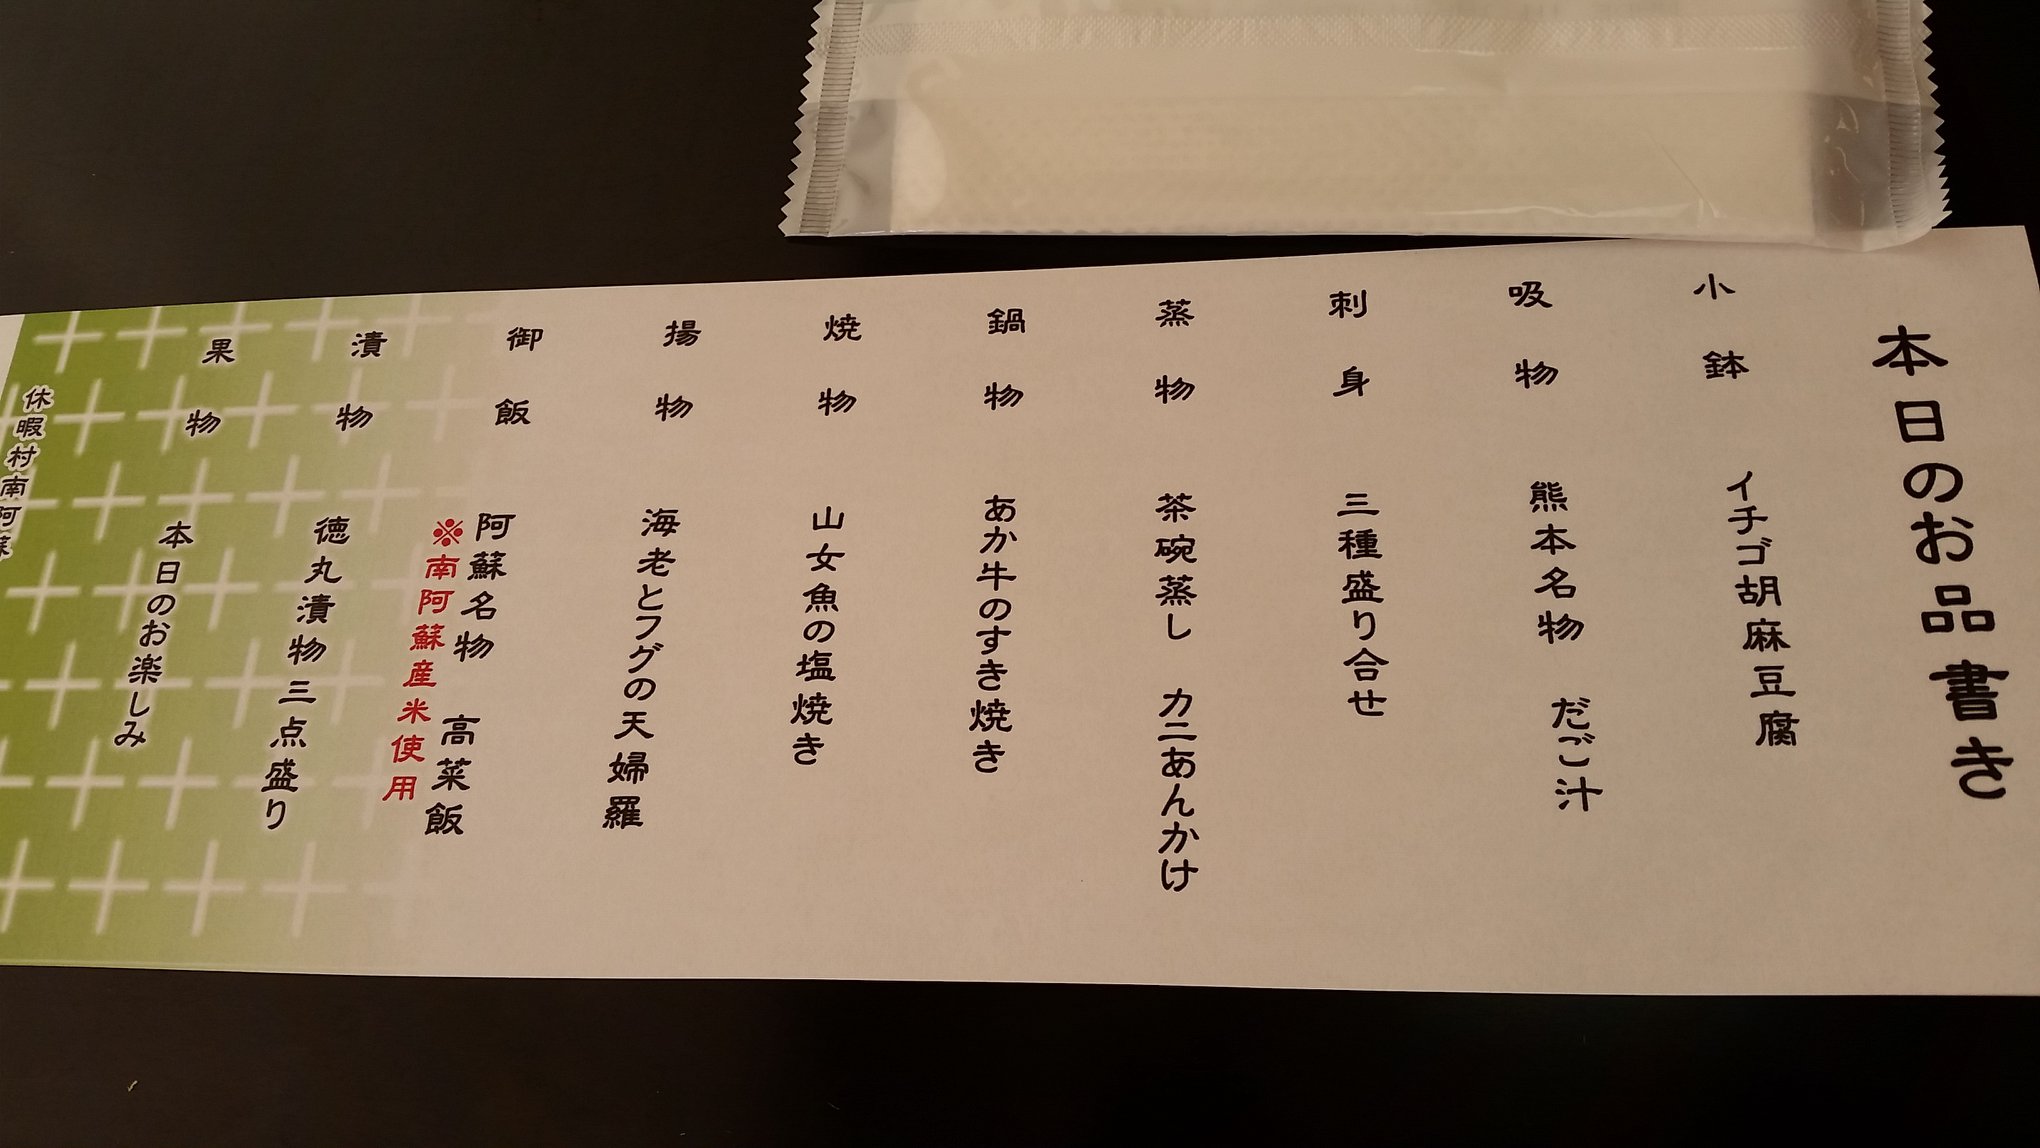 本日のお品書き
小鉢 イチゴ胡麻豆腐
吸物 熊本名物 だご汁
刺身 三種盛り合せ
蒸物 茶碗蒸し カニあんかけ
鍋物 あか牛のすき焼き
焼物 山女魚の塩焼き
揚物 海老とフグの天婦羅
御飯 阿蘇名物 高菜飯
※南阿蘇産米使用
漬物 徳丸漬物三点盛り
果物 本日のお楽しみ
休暇村南阿蘇